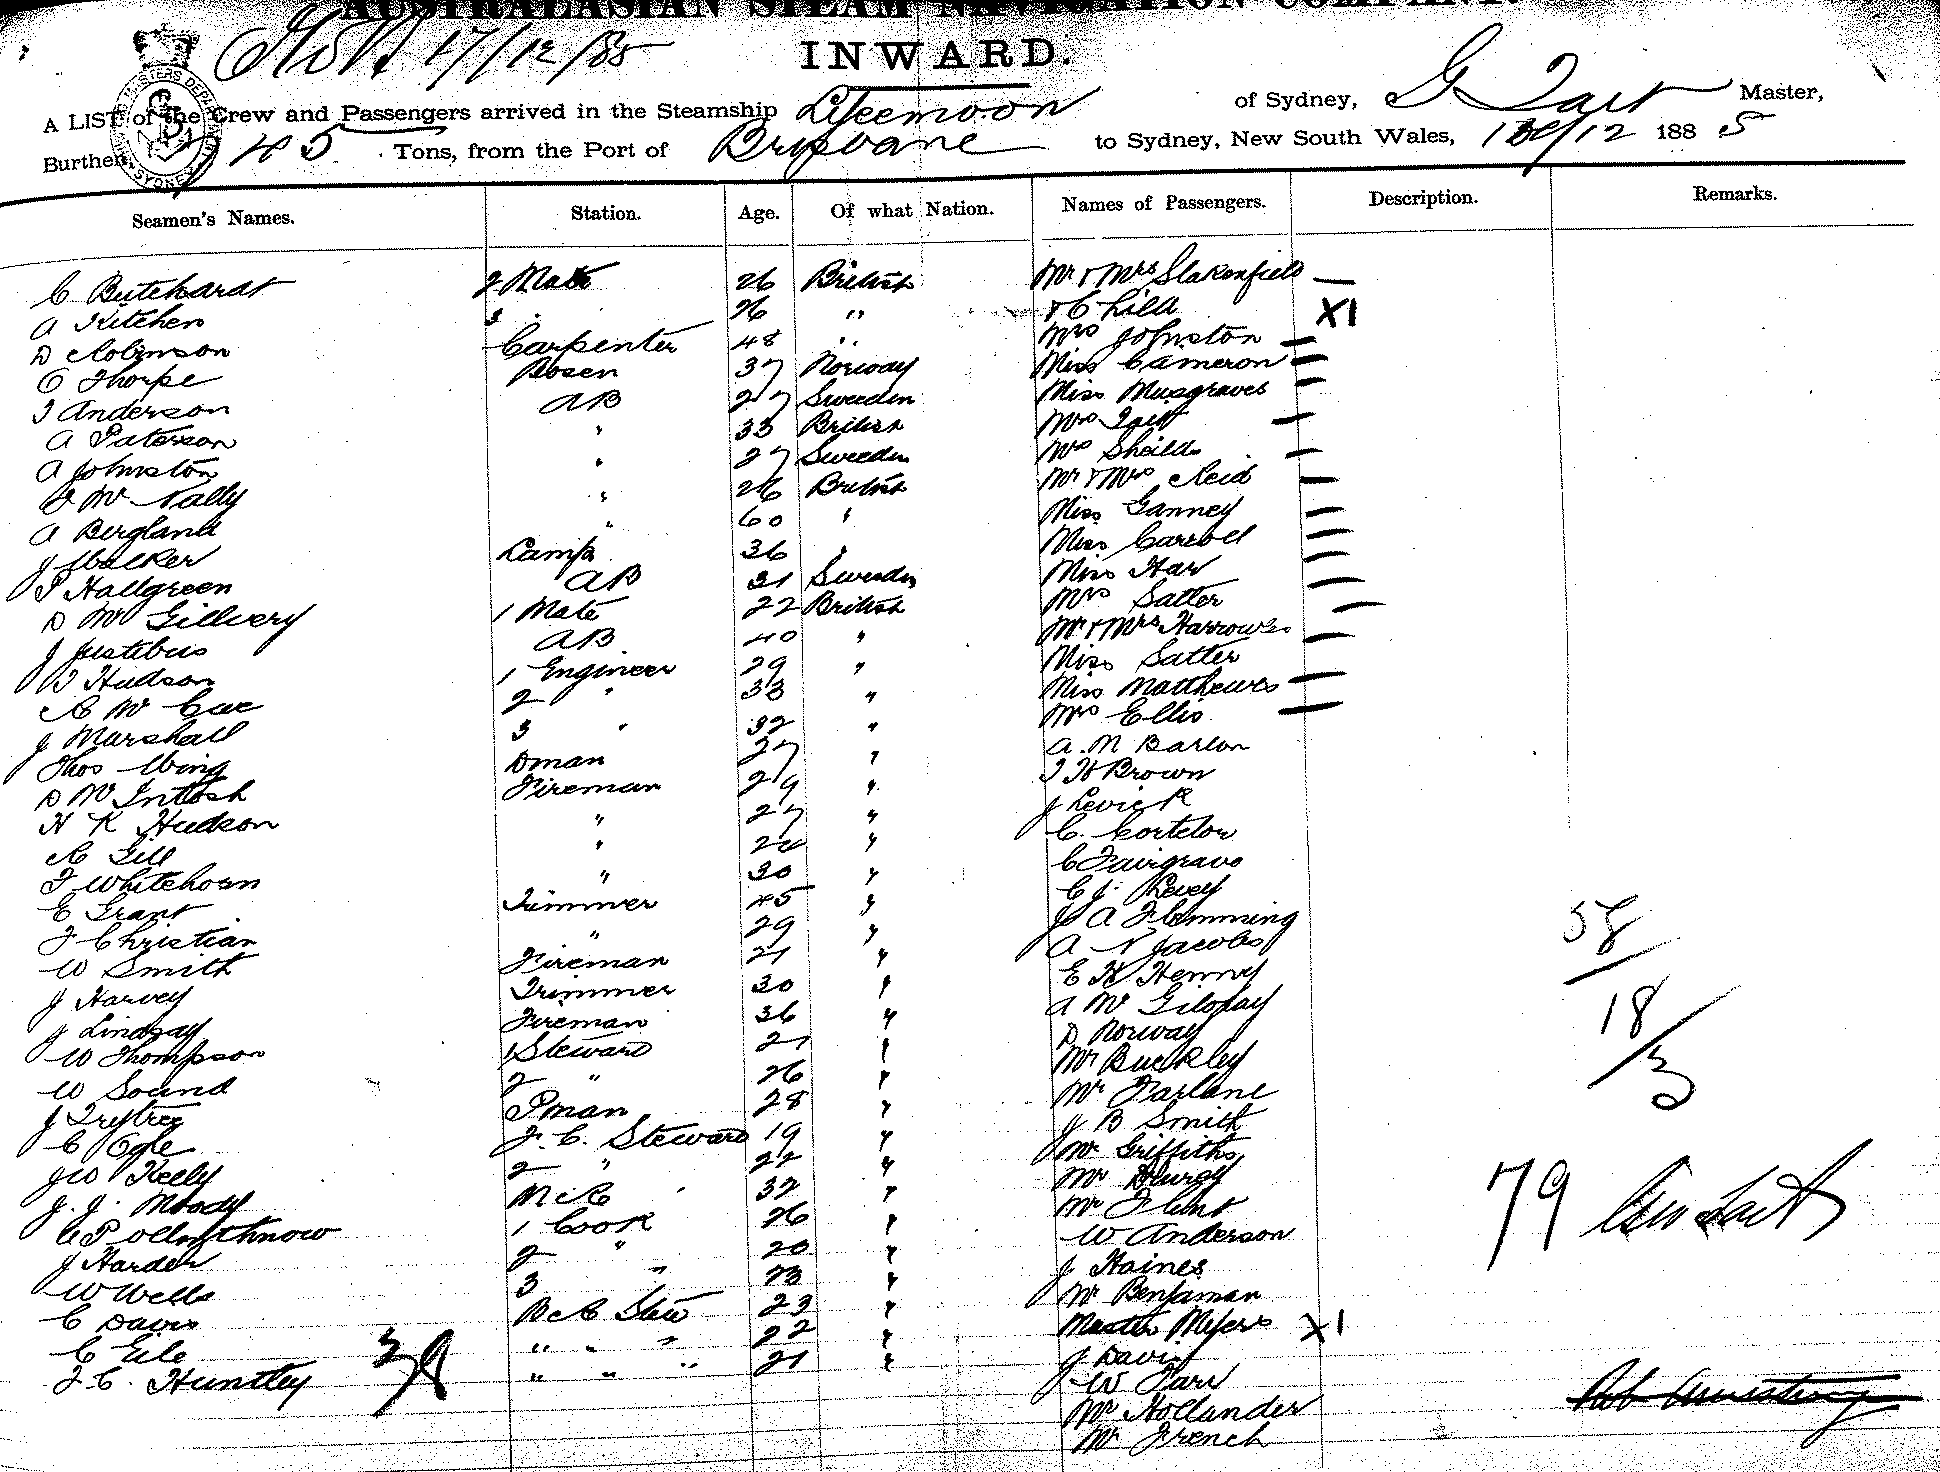 AUSTRALASIAN STEAM NAVIGATION COMPANY.
17/12/85
INWARD.
A LIST of the Crew and Passengers arrived in the Steamship Lyeemoon of Sydney, G Tait Master,
Burthen, Tons, from the Port of Brisbane to Sydney, New South Wales, 12 1885
Seamen's Names. Station. Age. Of what Nation. Names of Passengers. Description. Remarks.
C Butchardt 2 Mate 26 British Mr & Mrs Slakenfield —
A Kitchen 3 26 " & Child X1
D Robinson Carpenter 48 " Mrs Johnston —
C Thorpe Bosen 37 Norway Miss Cameron —
J Anderson AB 27 Sweeden Miss Musgraves —
A Paterson " 33 British Mrs Tait —
A Johnston " 27 Sweeden Mrs Sheilds —
McNally " 26 British Mr & Mrs Reid —
A Bergland " 60 " Miss Ganney —
J Walker Lamps 36 " Miss Carroll —
P Hallgreen AB 31 Sweeden Miss Har —
D McGillvery 1 Mate 22 British Mrs Satter —
J Justibus AB 40 " Mr & Mrs Harrowes —
T Hudson 1 Engineer 29 " Miss Satter —
R McCue 2 " 33 " Miss Matthewes —
J Marshall 3 " 32 " Mrs Ellis —
Thos Wing Dman 27 " A. M Barlon
D McIntosh Fireman 29 " T H Brown
H R Hudson " 27 " J Levick
R Gill " " C. Cortelor
F Whitehorn " 30 " C Fairgrave
E Grant Trimmer 45 " C J. Levey
F Christian " 29 " J A Flemming
W Smith Fireman 21 " A N Jacobs
J Harvey Trimmer 30 " E H Henry
J Lindsay Fireman 36 " A McGilvray
W Thompson 1 Steward 21 " D Norway
W Sound 2 " 26 " Mr Buckley
J Pman 28 " Mr Farlane
C Ogle F. C. Steward 19 " J B Smith
JW Kelly 2 " 22 " Mr Griffiths
J. J. Moody 32 " Mr
C Pollonthnow 1 Cook 26 " Mr Flint
J Harder 2 " 20 " W Anderson
W Wells 3 " 23 " J Haines
C Davis 23 " Mr Benjaman
C Eile " " " 22 " Master Meyers X1
F. C. Huntley " " " 21 " J Davis
W Parr
Mr Hollander
Mr French
38
58
18
3
79 Geo Tait